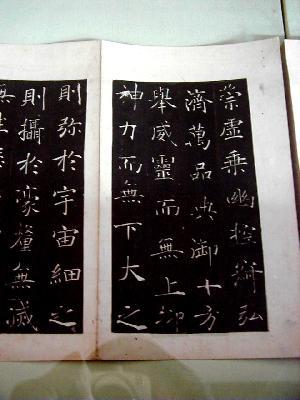 崇虛乘幽控寂弘
濟萬品典御十方
舉威靈而無上抑
神力而無下大之
則弥於宇宙細之
則攝於豪釐無滅
無生